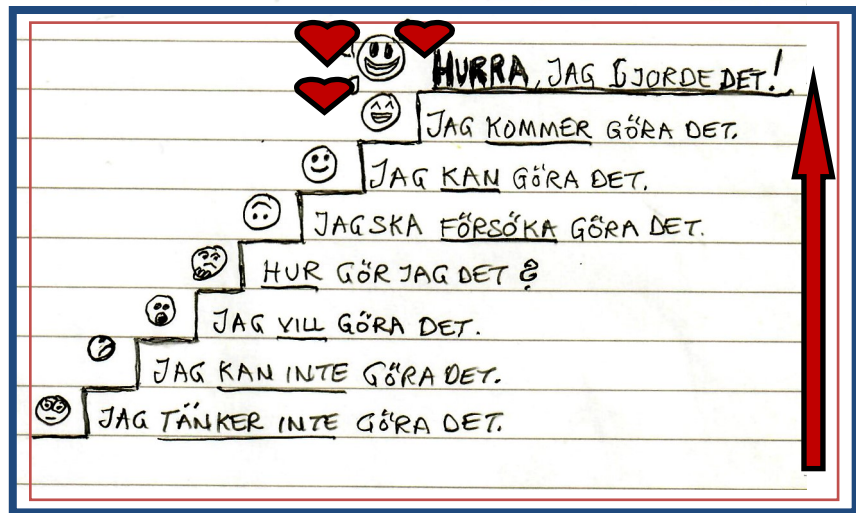 HURRA, JAG GJORDE DET!
JAG KOMMER GÖRA DET.
JAG KAN GÖRA DET.
JAG SKA FÖRSÖKA GÖRA DET.
HUR GÖR JAG DET ?
JAG VILL GÖRA DET.
JAG KAN INTE GÖRA DET.
JAG TÄNKER INTE GÖRA DET.